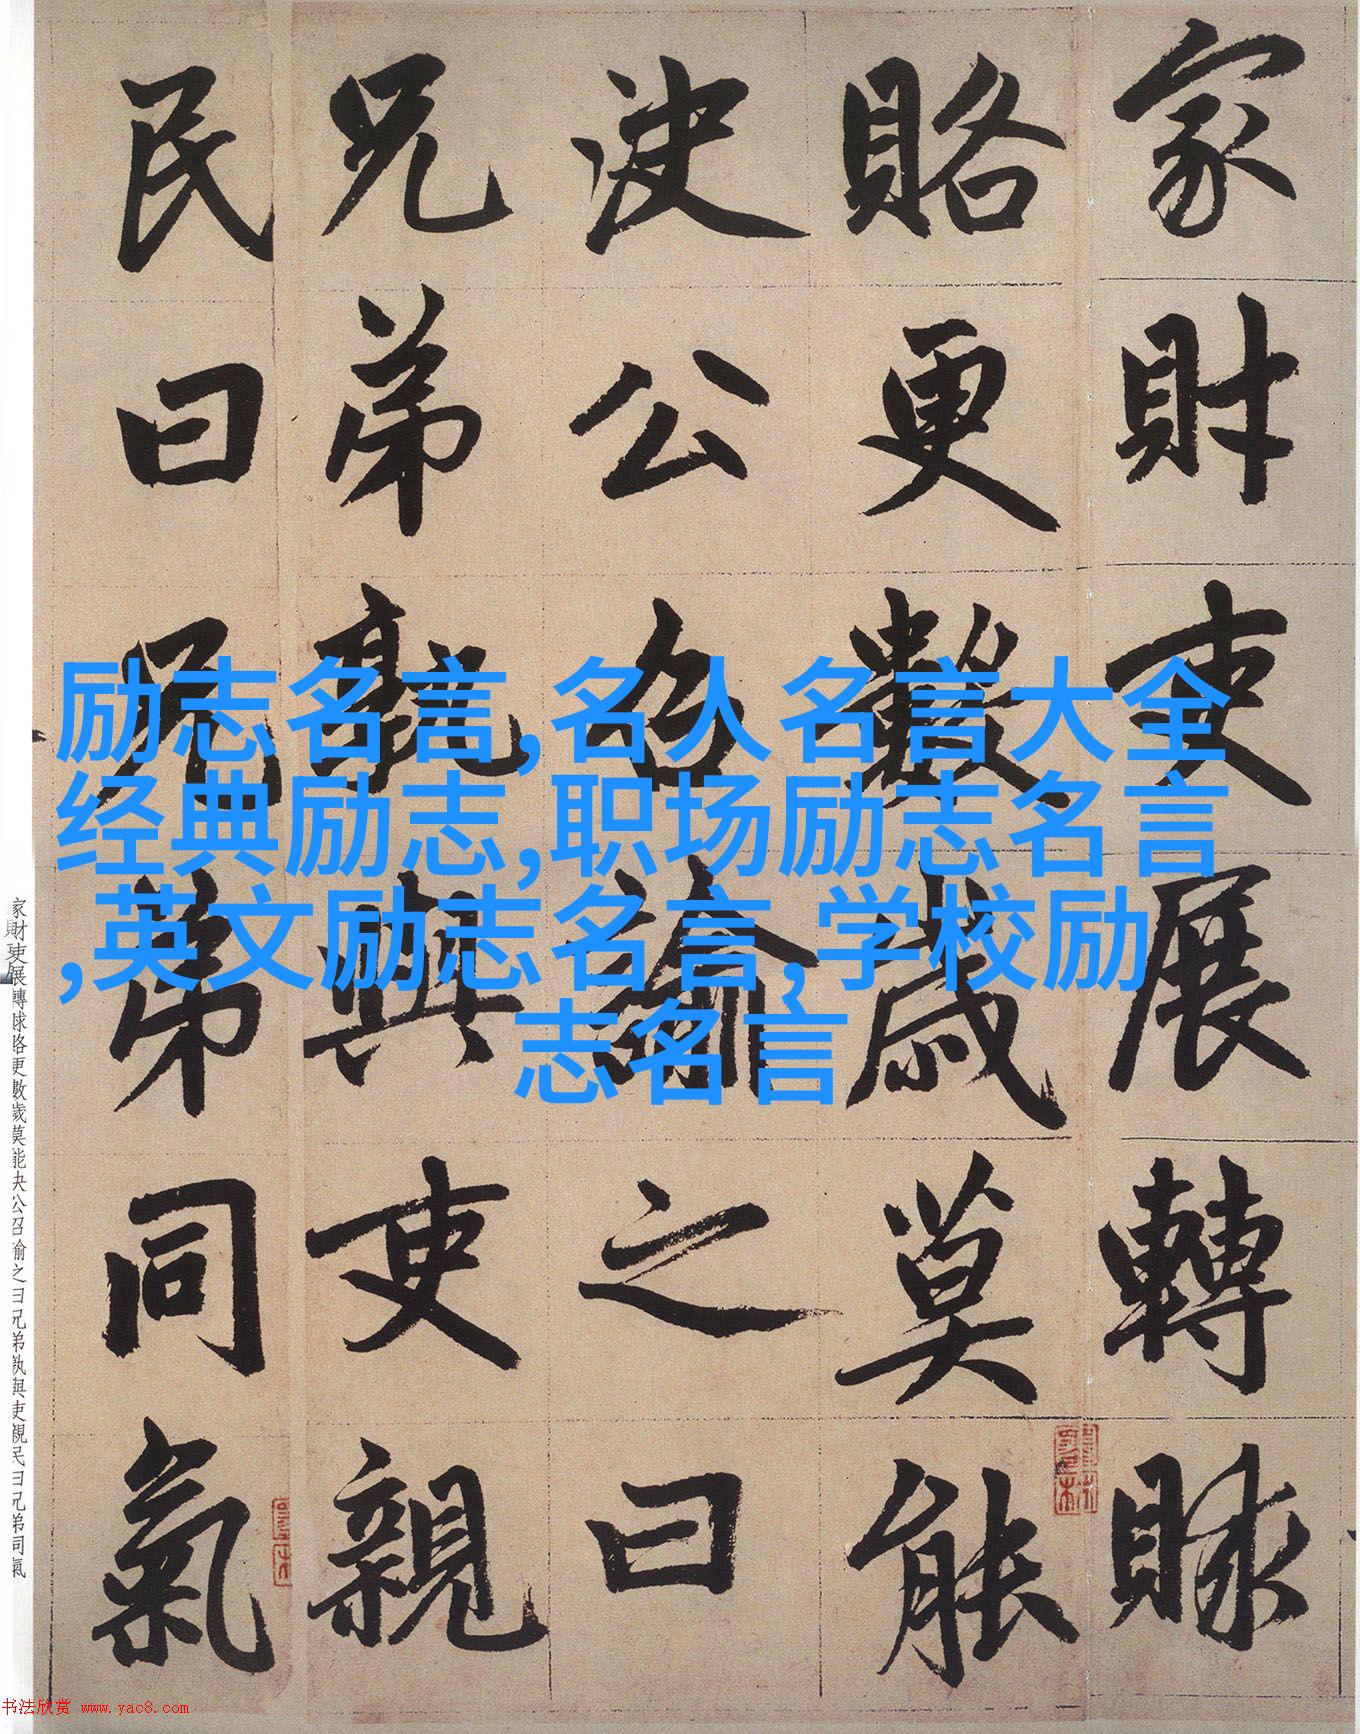 家財吏展轉賕
賂更數歲莫能
決公召諭之曰
兄弟孰與吏親
民曰兄弟同氣
励志名言,名人名言大全
经典励志,职场励志名言
,英文励志名言,学校励
志名言
家財吏展轉賕賂更數歲莫能決公召諭之曰兄弟孰與吏親民曰兄弟同氣
书法欣赏 www.yac8.com